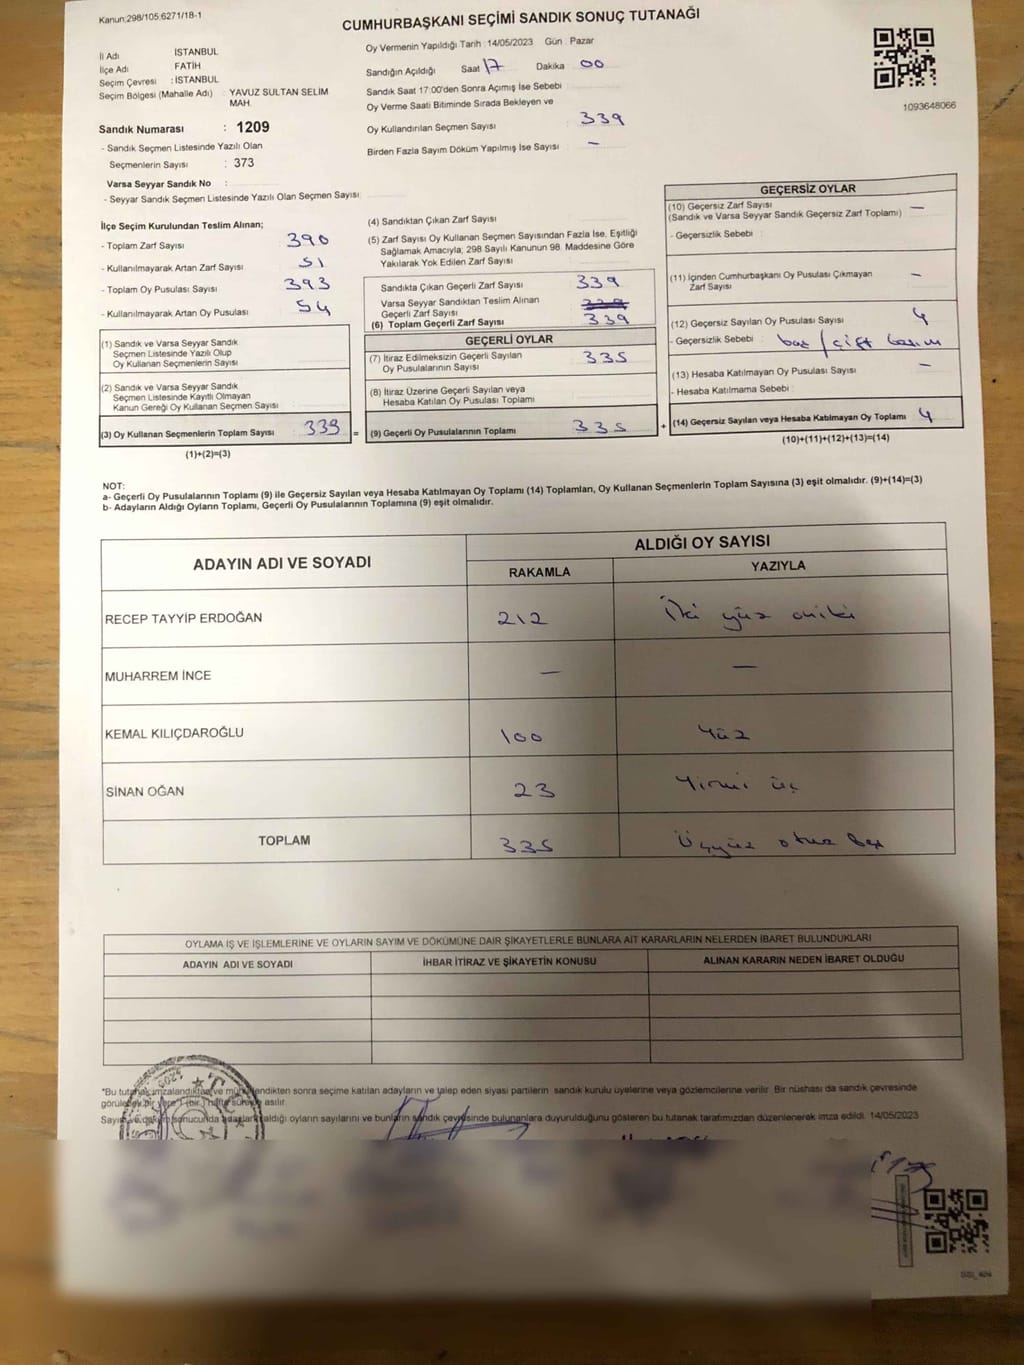 Kanun:298/105;6271/18-1
CUMHURBAŞKANI SEÇİMİ SANDIK SONUÇ TUTANAĞI
İl Adı İSTANBUL
İlçe Adı FATİH
Seçim Çevresi : İSTANBUL
Seçim Bölgesi (Mahalle Adı) : YAVUZ SULTAN SELİM
MAH.
Sandık Numarası : 1209
- Sandık Seçmen Listesinde Yazılı Olan
Seçmenlerin Sayısı : 373
Varsa Seyyar Sandık No :
- Seyyar Sandık Seçmen Listesinde Yazılı Olan Seçmen Sayısı :
Oy Vermenin Yapıldığı Tarih : 14/05/2023 Gün : Pazar
Sandığın Açıldığı Saat 17 Dakika 00
Sandık Saat 17:00'den Sonra Açımış İse Sebebi
Oy Verme Saati Bitiminde Sırada Bekleyen ve
Oy Kullandırılan Seçmen Sayısı : 339
Birden Fazla Sayım Döküm Yapılmış İse Sayısı : -
1093648066
İlçe Seçim Kurulundan Teslim Alınan;
- Toplam Zarf Sayısı 390
- Kullanılmayarak Artan Zarf Sayısı 51
- Toplam Oy Pusulası Sayısı 393
- Kullanılmayarak Artan Oy Pusulası 54
(1) Sandık ve Varsa Seyyar Sandık
Seçmen Listesinde Yazılı Olup
Oy Kullanan Seçmenlerin Sayısı :
(2) Sandık ve Varsa Seyyar Sandık
Seçmen Listesinde Kayıtlı Olmayan
Kanun Gereği Oy Kullanan Seçmen Sayısı :
(3) Oy Kullanan Seçmenlerin Toplam Sayısı 339 =
(1)+(2)=(3)
(4) Sandıktan Çıkan Zarf Sayısı :
(5) Zarf Sayısı Oy Kullanan Seçmen Sayısından Fazla İse, Eşitliği
Sağlamak Amacıyla; 298 Sayılı Kanunun 98. Maddesine Göre
Yakılarak Yok Edilen Zarf Sayısı :
Sandıkta Çıkan Geçerli Zarf Sayısı : 339
Varsa Seyyar Sandıktan Teslim Alınan
Geçerli Zarf Sayısı : 339
(6) Toplam Geçerli Zarf Sayısı : 339
GEÇERLİ OYLAR
(7) İtiraz Edilmeksizin Geçerli Sayılan
Oy Pusulalarının Sayısı : 335
(8) İtiraz Üzerine Geçerli Sayılan veya
Hesaba Katılan Oy Pusulası Toplamı :
(9) Geçerli Oy Pusulalarının Toplamı : 335 +
GEÇERSİZ OYLAR
(10) Geçersiz Zarf Sayısı : -
(Sandık ve Varsa Seyyar Sandık Geçersiz Zarf Toplamı)
- Geçersizlik Sebebi :
(11) İçinden Cumhurbaşkanı Oy Pusulası Çıkmayan
Zarf Sayısı : -
(12) Geçersiz Sayılan Oy Pusulası Sayısı : 4
- Geçersizlik Sebebi : boş / çift basım
(13) Hesaba Katılmayan Oy Pusulası Sayısı : -
- Hesaba Katılmama Sebebi :
(14) Geçersiz Sayılan veya Hesaba Katılmayan Oy Toplamı 4
(10)+(11)+(12)+(13)=(14)
NOT:
a- Geçerli Oy Pusulalarının Toplamı (9) ile Geçersiz Sayılan veya Hesaba Katılmayan Oy Toplamı (14) Toplamları, Oy Kullanan Seçmenlerin Toplam Sayısına (3) eşit olmalıdır. (9)+(14)=(3)
b- Adayların Aldığı Oyların Toplamı, Geçerli Oy Pusulalarının Toplamına (9) eşit olmalıdır.
ADAYIN ADI VE SOYADI ALDIĞI OY SAYISI
RAKAMLA YAZIYLA
RECEP TAYYİP ERDOĞAN 212 İki yüz oniki
MUHARREM İNCE - -
KEMAL KILIÇDAROĞLU 100 Yüz
SİNAN OĞAN 23 Yirmi üç
TOPLAM 335 Üçyüz otuz beş
OYLAMA İŞ VE İŞLEMLERİNE VE OYLARIN SAYIM VE DÖKÜMÜNE DAİR ŞİKAYETLERLE BUNLARA AİT KARARLARIN NELERDEN İBARET BULUNDUKLARI
ADAYIN ADI VE SOYADI İHBAR İTİRAZ VE ŞİKAYETİN KONUSU ALINAN KARARIN NEDEN İBARET OLDUĞU
*Bu tutanak imzalandıktan ve mühürlendikten sonra seçime katılan adayların ve talep eden siyasi partilerin sandık kurulu üyelerine veya gözlemcilerine verilir. Bir nüshası da sandık çevresinde
görülecek bir yere 1 (bir) hafta süreyle asılır.
Sayım ve döküm sonucunda adayların aldığı oyların sayılarını ve bunların sandık çevresinde bulunanlara duyurulduğunu gösteren bu tutanak tarafımızdan düzenlenerek imza edildi. 14/05/2023